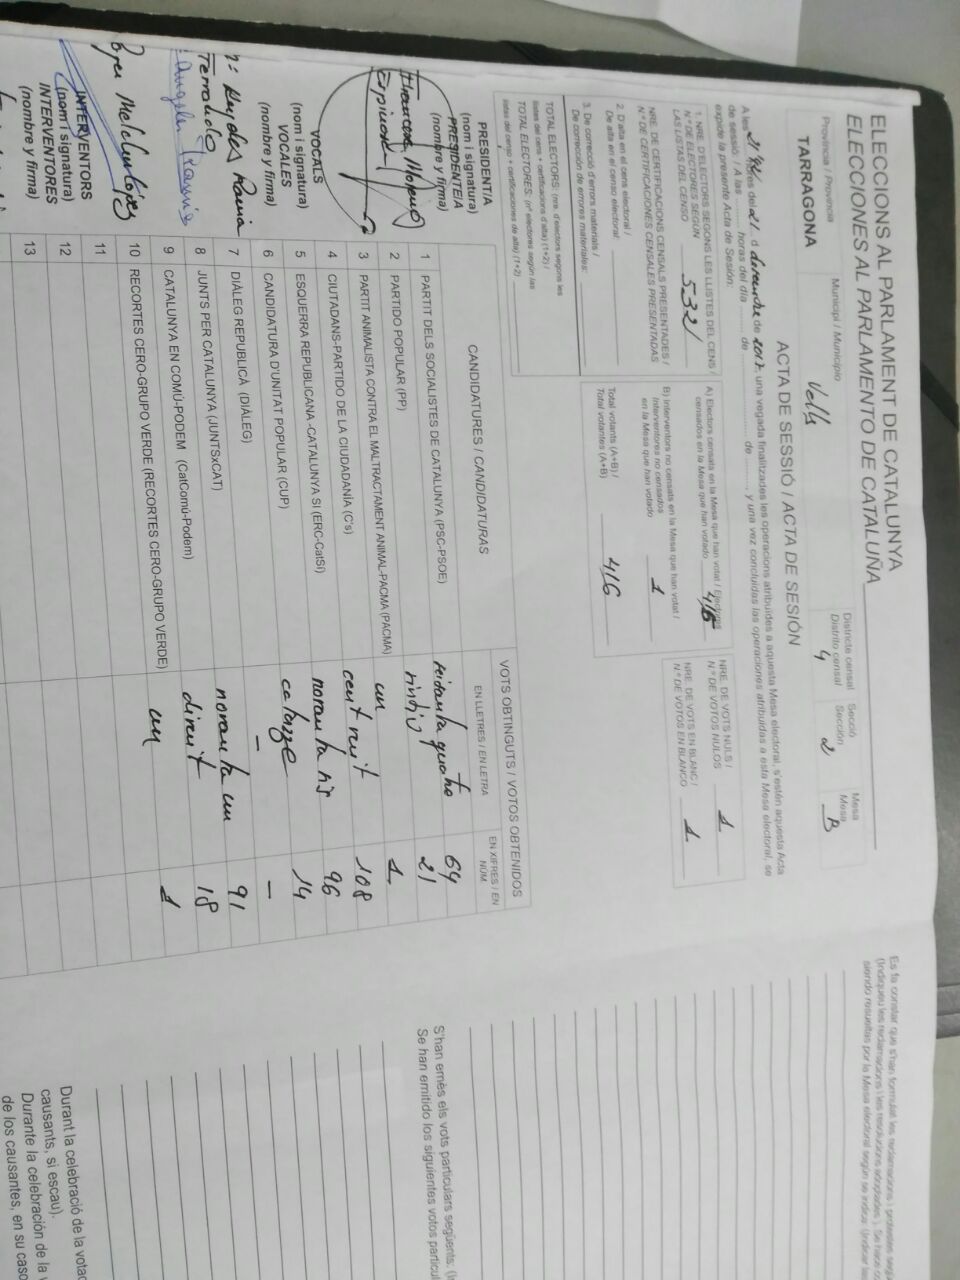 ELECCIONS AL PARLAMENT DE CATALUNYA
ELECCIONES AL PARLAMENTO DE CATALUÑA
Província / Provincia
TARRAGONA
Municipi / Municipio
Valls
Districte censal
Distrito censal
4
Secció
Sección
2
Mesa
Mesa
B
ACTA DE SESSIÓ / ACTA DE SESIÓN
A les hores del 21 d desembre de 2017, una vegada finalitzades les operacions atribuïdes a aquesta Mesa electoral, s'estén aquesta Acta
de sessió / A las ........ horas del día ........ de ........ de ........ y una vez concluidas las operaciones atribuidas a esta Mesa electoral, se
expide la presente Acta de Sesión:
1. NRE. D'ELECTORS SEGONS LES LLISTES DEL CENS /
N.º DE ELECTORES SEGÚN
LAS LISTAS DEL CENSO 532
NRE. DE CERTIFICACIONS CENSALS PRESENTADES /
N.º DE CERTIFICACIONES CENSALES PRESENTADAS
2. D'alta en el cens electoral /
De alta en el censo electoral:
3. De correcció d'errors materials /
De corrección de errores materiales:
TOTAL ELECTORS: (nre. d'electors segons les
llistes del cens + certificacions d'alta) (1+2) /
TOTAL ELECTORES: (nº electores según las
listas del censo + certificaciones de alta) (1+2)
A) Electors censats en la Mesa que han votat / Electores
censados en la Mesa que han votado
B) Interventors no censats en la Mesa que han votat /
Interventores no censados
en la Mesa que han votado 1
Total votants (A+B) /
Total votantes (A+B) 416
NRE. DE VOTS NULS /
N.º DE VOTOS NULOS 1
NRE. DE VOTS EN BLANC /
N.º DE VOTOS EN BLANCO 1
PRESIDENT/A
(nom i signatura)
PRESIDENTE/A
(nombre y firma)
VOCALS
(nom i signatura)
VOCALES
(nombre y firma)
INTERVENTORS
(nom i signatura)
INTERVENTORES
(nombre y firma)
CANDIDATURES / CANDIDATURAS
VOTS OBTINGUTS / VOTOS OBTENIDOS
EN LLETRES / EN LETRA
EN XIFRES / EN NÚM.
1 PARTIT DELS SOCIALISTES DE CATALUNYA (PSC-PSOE) seixanta quatre 64
2 PARTIDO POPULAR (PP) vintiú 21
3 PARTIT ANIMALISTA CONTRA EL MALTRACTAMENT ANIMAL-PACMA (PACMA) un 1
4 CIUTADANS-PARTIDO DE LA CIUDADANÍA (C's) cent vuit 108
5 ESQUERRA REPUBLICANA -CATALUNYA SÍ (ERC-CatSí) noranta sis 96
6 CANDIDATURA D'UNITAT POPULAR (CUP) catorze 14
7 DIÀLEG REPUBLICÀ (DIÀLEG) - -
8 JUNTS PER CATALUNYA (JUNTSxCAT) noranta un 91
9 CATALUNYA EN COMÚ-PODEM (CatComú-Podem) divuit 18
10 RECORTES CERO-GRUPO VERDE (RECORTES CERO-GRUPO VERDE) un 1
11
12
13
S'han emès els vots particulars següents:
Se han emitido los siguientes votos
Durant la celebració de la
causants, si escau).
Durante la celebración de la
de los causantes, en su caso